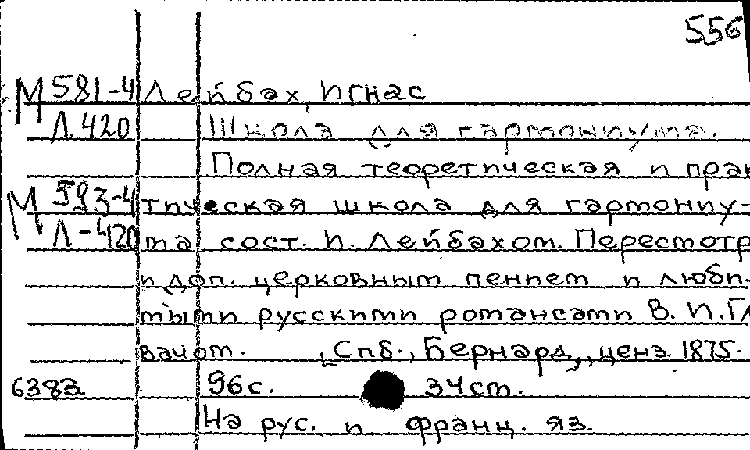 556
М 581-4 Лейбах, Игнас
Л 420 Школа для гармониума.
Полная теоретическая и прак
М 593-4 тическая школа для гармониу-
Л-420 ма сост. И. Лейбахом. Пересмотр
и доп. церковным пением и люби-
мыми русскими романсами В. И. Гл
вачом. Спб., Бернард, ценз. 1875.
6382 96 с. 34 cm.
На рус. и франц. яз.